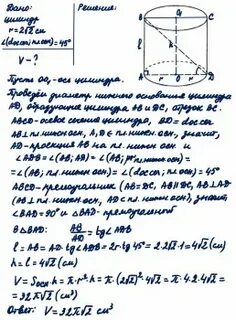 Дано: Решение:
цилиндр
r = 2√2 см
∠(d осев.; пл.осн) = 45°
V - ?
B O₁ C
l h
A r O r D
Пусть OO₁ - ось цилиндра.
Проведём диаметр нижнего основания цилиндра
AD, образующие цилиндра AB и DC, отрезок BC.
ABCD - осевое сечение цилиндра, BD = d осев
AB ⊥ пл. нижн. осн, A, D ∈ пл. нижн. осн, значит,
AD - проекция BD на пл. нижн. осн и
∠ADB = ∠(AD; BD) = ∠(BD; пл. нижн. осн) =
= ∠(d осев; пл. осн) = 45°
ABCD - прямоугольник (AB = DC, AB ∥ DC, AB ⊥ AD
(AB ⊥ пл. нижн. осн, AD ⊂ пл. нижн. осн), значит,
∠BAD = 90° и △BAD - прямоугольный
В △BAD: AB/AD = tg∠ADB
l = AB = AD · tg∠ADB = 2r · tg 45° = 2·2√2·1 = 4√2 (см)
h = l = 4√2 (см)
V = Sосн · h = π · r² · h = π · (2√2)² · 4√2 = π · 4 · 2 · 4√2 =
= 32π√2 (см³)
Ответ: V = 32π√2 см³